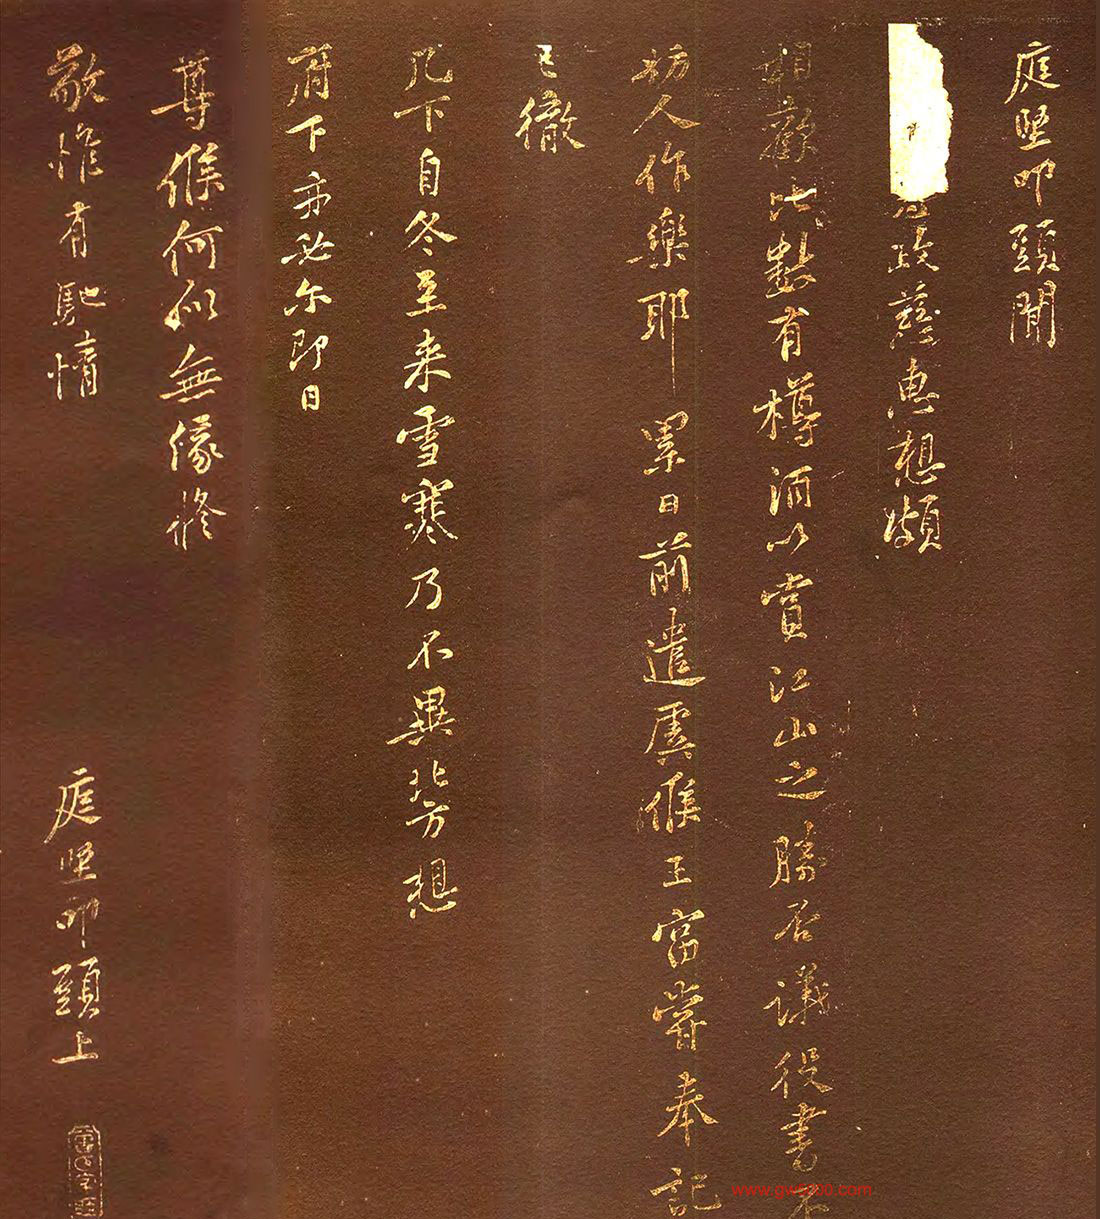 庭堅叩頭聞
政慈惠想頗
相歡比數有樽酒以賞江山之勝否議役書不
妨人作樂耶累日前遣虞候王富嘗奉記
已徹
几下自冬至来雪寒乃不異北方想
府下亦必尔即日
尊候何似無緣修
敬惟有馳情
庭堅叩頭上
www.gw5200.com